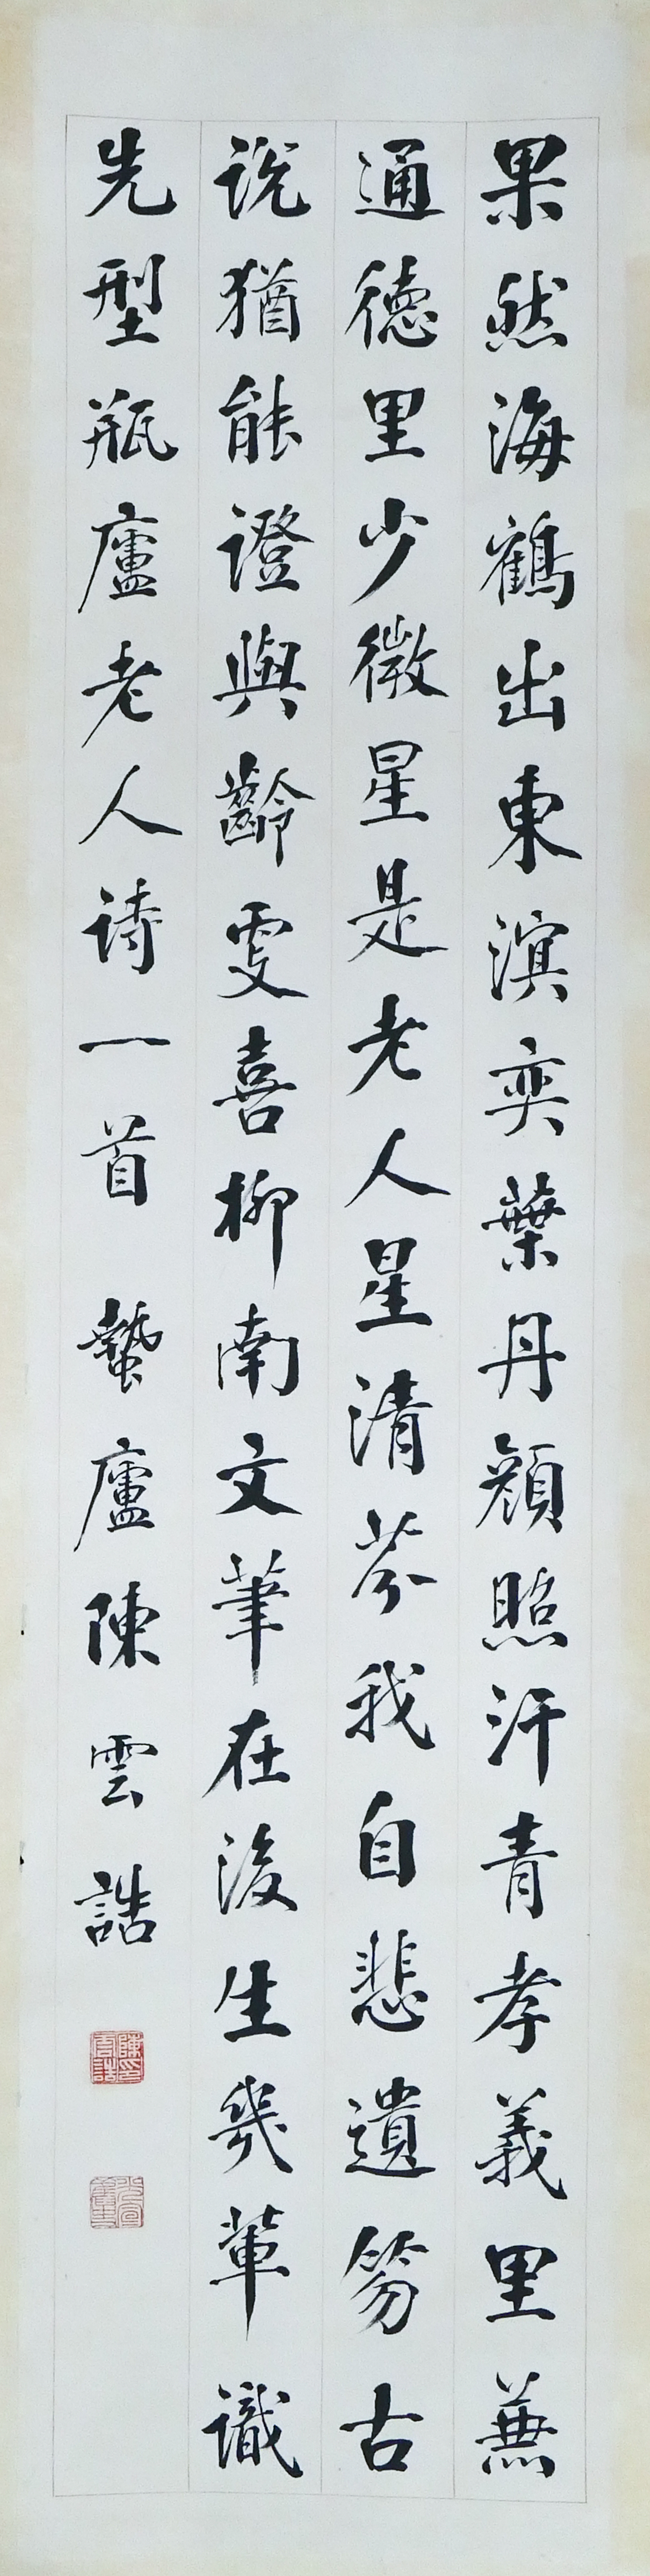 果然海鶴出東溟奕葉丹顏照汗青孝義里兼
通德里少微星是老人星清芬我自悲遺笏古
說猶能證與齡更喜柳南文筆在後生幾輩識
先型瓶廬老人詩一首 蟄廬陳雲誥
陳雲誥印